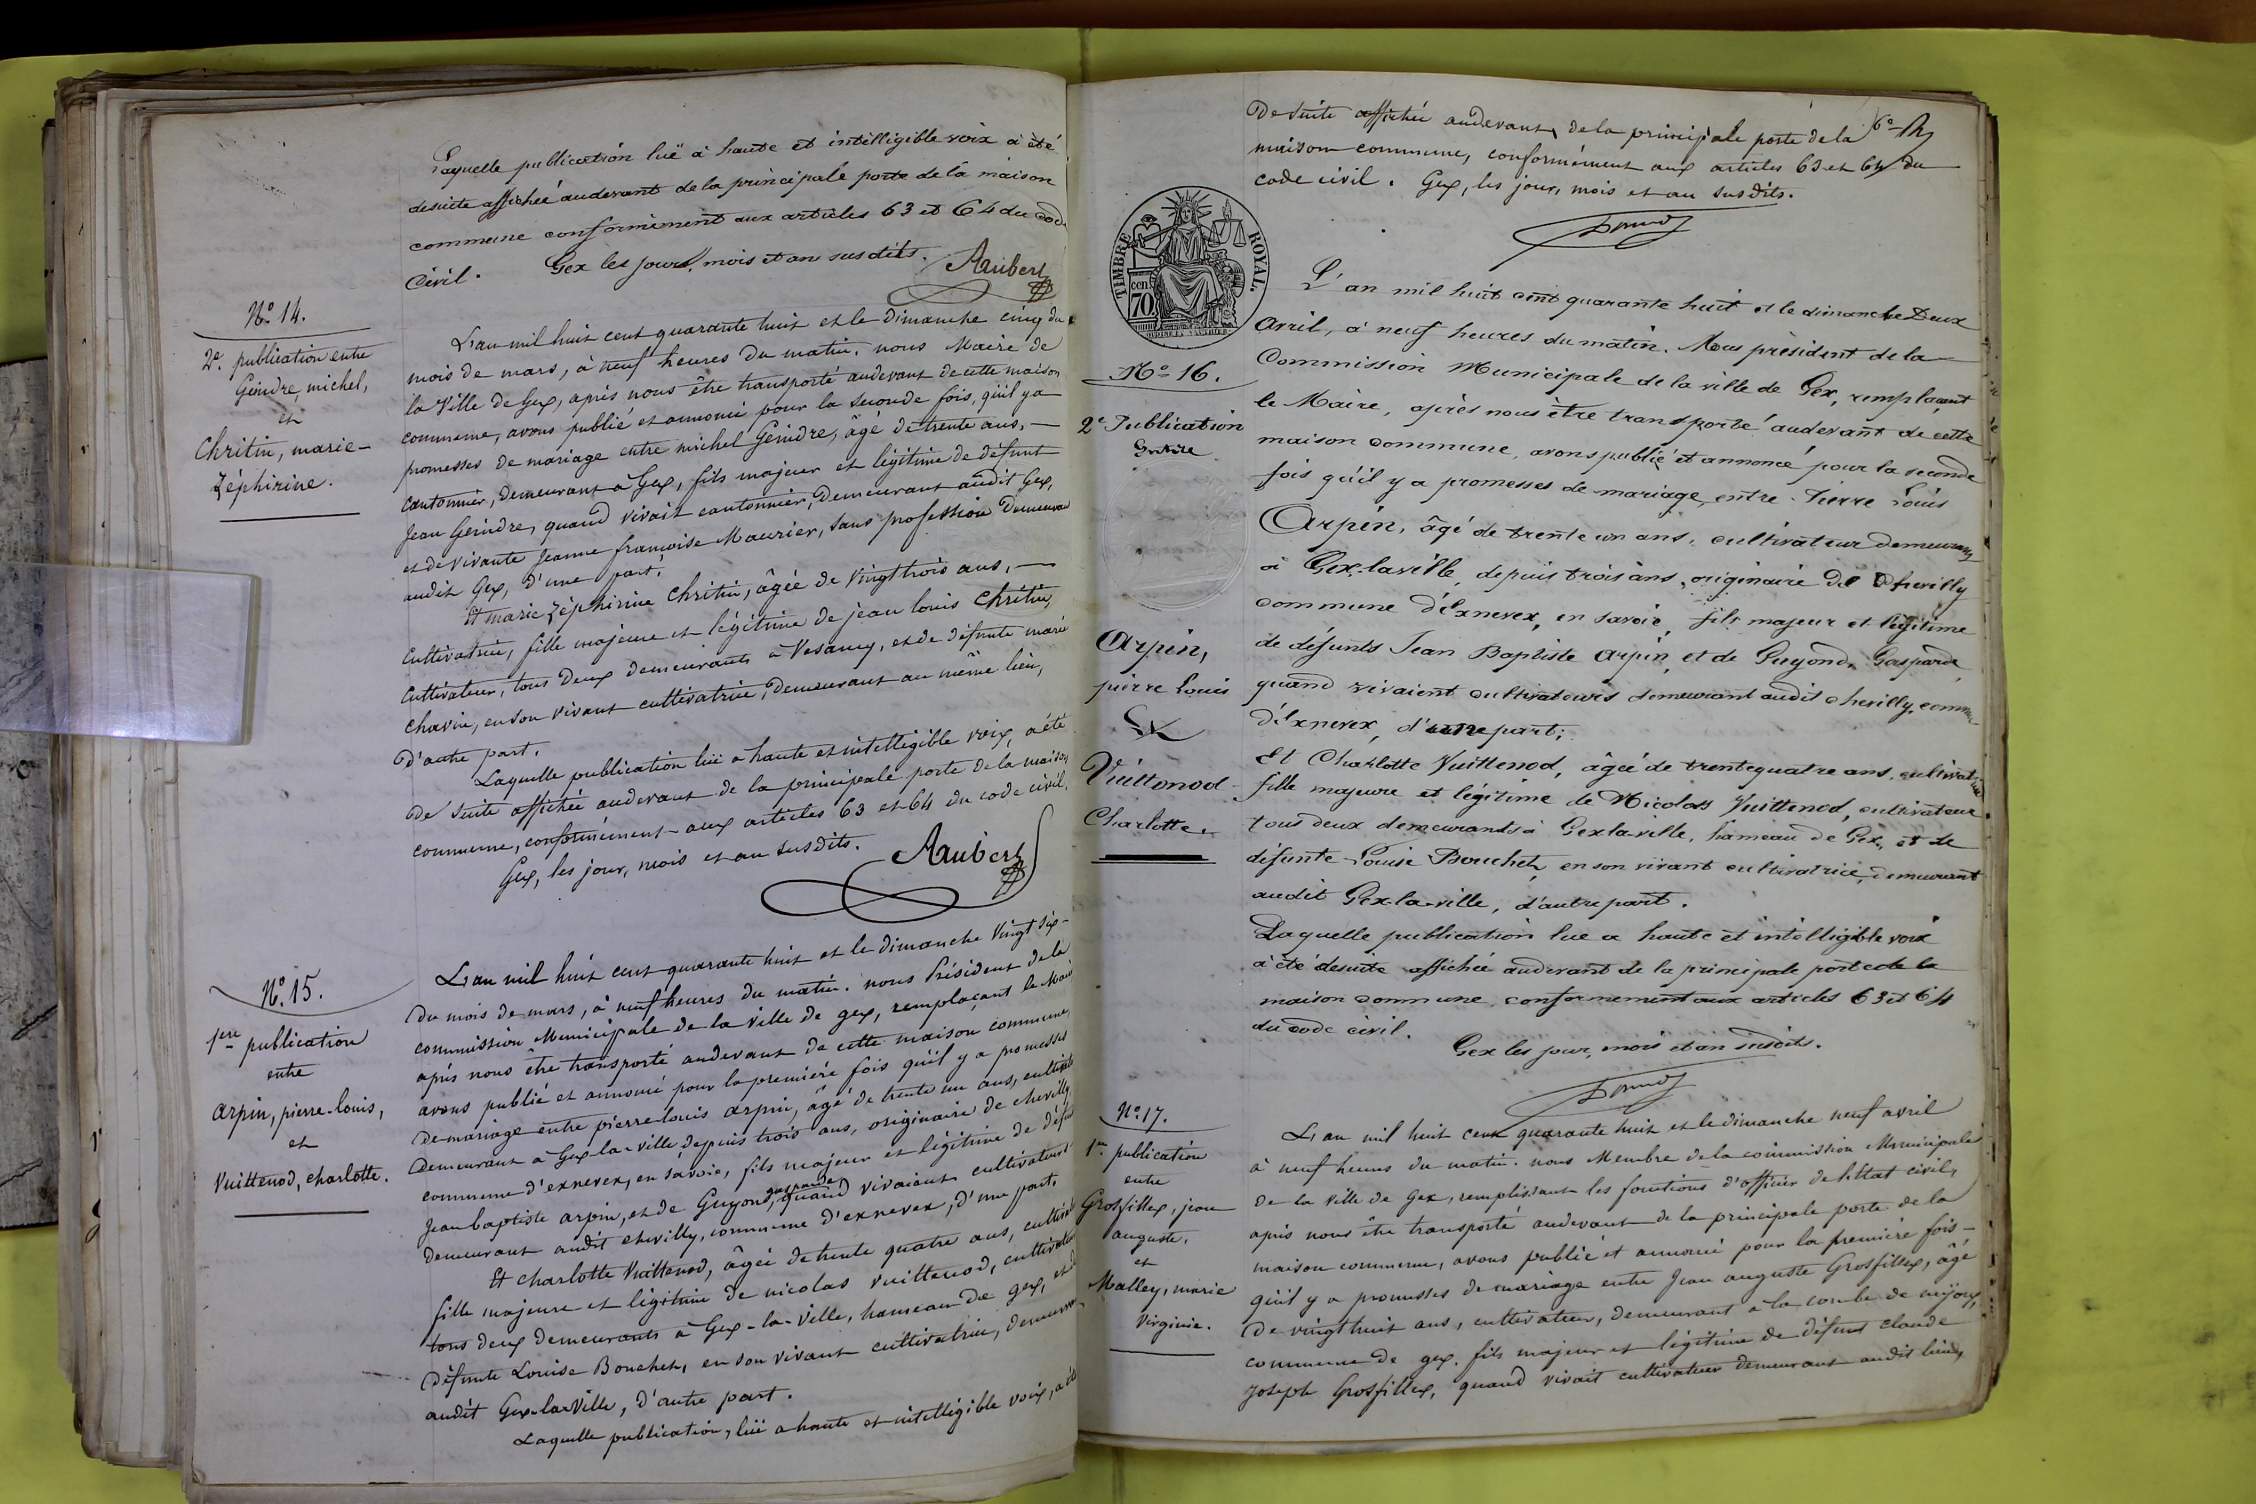 Laquelle publication luë à haute et intelligible voix a été
desuite affichée audevant de la principale porte de la maison
commune conformément aux articles 63 et 64 du cod
Civil. Gex les jour, mois et an susdits.
Aubert
No. 14.
2e. publication entre
Geindre, michel,
et
Chritin, marie-
Zéphirine.
L'an mil huit cent quarante huit et le Dimanche cinq du
mois de mars, à neuf heures du matin. nous Maire de
la Ville de Gex, après nous être transporté audevant de cette maison
commune, avons publié et annoncé pour la seconde fois, qu'il y a
promesses de mariage entre michel Geindre, âgé de trente ans, —
cantonnier, demeurant à Gex, fils majeur et légitime de défunt
Jean Geindre, quand vivait cantonnier, demeurant audit Gex,
et de vivante Jeanne françoise Maurier, sans profession Demeurant
audit Gex, d'une part,
Et marie Zéphirine Chritin, âgée de vingt trois ans, —
Cultivatrice, fille majeure et légitime de jean louis Chritin,
Cultivateur, tous Deux demeurants à Vesancy, et de défunte marie
Chavin, en son vivant cultivatrice, Demeurant au même lieu,
D'autre part.
Laquelle publication luë a haute et intelligible voix, a été
De suite affichée audevant de la principale porte de la maison
commune, conformément aux articles 63 et 64 du code civil.
Gex, les jour, mois et an susdits.
Aubert
No. 15.
1ere publication
entre
arpin, pierre-louis,
et
Vuittenod, charlotte.
L'an mil huit cent quarante huit et le dimanche Vingt six-
Du mois de mars, à neuf heures du matin. nous Président de la
commission Municipale de la ville de gex, remplaçant le Mai
après nous être transporté audevant de cette maison commune,
avons publié et annoncé pour la première fois qu'il y a promesses
De mariage entre pierre louis arpin, âgé de trente un ans, cultivat
Demeurant à Gex-la-ville depuis trois ans, originaire de chevilly
commune d'exnevex, en savoie, fils majeur et légitime de défu
Jean baptiste arpin, et de Guyond, gasparde, quand vivaient cultivateurs
demeurant audit chevilly, commune d'exnevex, d'une part.
Et charlotte Vuittenod, âgée de trente quatre ans, cultivat
fille majeure et légitime de nicolas vuittenod, cultivateu
tous deux demeurants à Gex-la-Ville, hameau de gex, et d
Défunte Louise Bouchet, en son vivant cultivatrice, demeura
audit Gex-la-Ville, d'autre part.
Laquelle publication, luë a haute et intelligible voix, a été
De suite affichée audevant, de la principale porte de la
maison commune, conformément aux articles 63 et 64 du
code civil. Gex, les jour, mois et an susdits.
TIMBRE ROYAL.
70 cen
No 16.
2e Publication
Entre
Arpin,
pierre Louis
Et
Vuittonod
Charlotte.
L'an mil huit cent quarante huit et le dimanche Deux
Avril, à neuf heures du matin. Nous président de la
Commission Municipale de la ville de Gex, remplaçant
le Maire, après nous être transporté audevant de cette
maison commune, avons publié et annoncé pour la seconde
fois qu'il y a promesses de mariage entre Pierre Louis
Arpin, âgé de trente un ans, cultivateur demeurant
à Gex-la-ville, depuis trois ans, originaire de Chevilly
commune d'Exnevex, en savoie, fils majeur et légitime
de défunts Jean Baptiste arpin, et de Guyond, Gasparde
quand vivaient cultivateurs demeurant audit chevilly, commu-
d'Exnevex, d'une part;
Et Charlotte Vuittenod, âgée de trente quatre ans, cultivatrice
fille majeure et légitime de Nicolas Vuittenod, cultivateur
tous deux demeurants à Gex la ville, hameau de Gex, et de
défunte Louise Bouchet, en son vivant cultivatrice, demeurant
audit Gex-la-ville, d'autre part.
Laquelle publication lue a haute et intelligible voix
a été desuite affichée audevant de la principale porte de la
maison commune, conformement aux articles 63 et 64
du code civil.
Gex les jour, mois et an susdits.
No. 17.
1re publication
entre
Grosfillex, jean
auguste,
et
Malley, marie
Virginie.
L'an mil huit cent quarante huit et le dimanche neuf avril
à neuf heures du matin. nous Membre de la commission Municipale
de la Ville de Gex, remplissant les fonctions d'officier de l'état civil,
après nous être transporté audevant de la principale porte de la
maison commune, avons publié et annoncé pour la première fois-
qu'il y a promesses de mariage entre Jean auguste Grosfillex, âgé
De vingt huit ans, cultivateur, demeurant a la combe de mijoux,
commune de gex. fils majeur et légitime de défunt claude
Joseph Grosfillex, quand vivait cultivateur demeurant audit lieu,